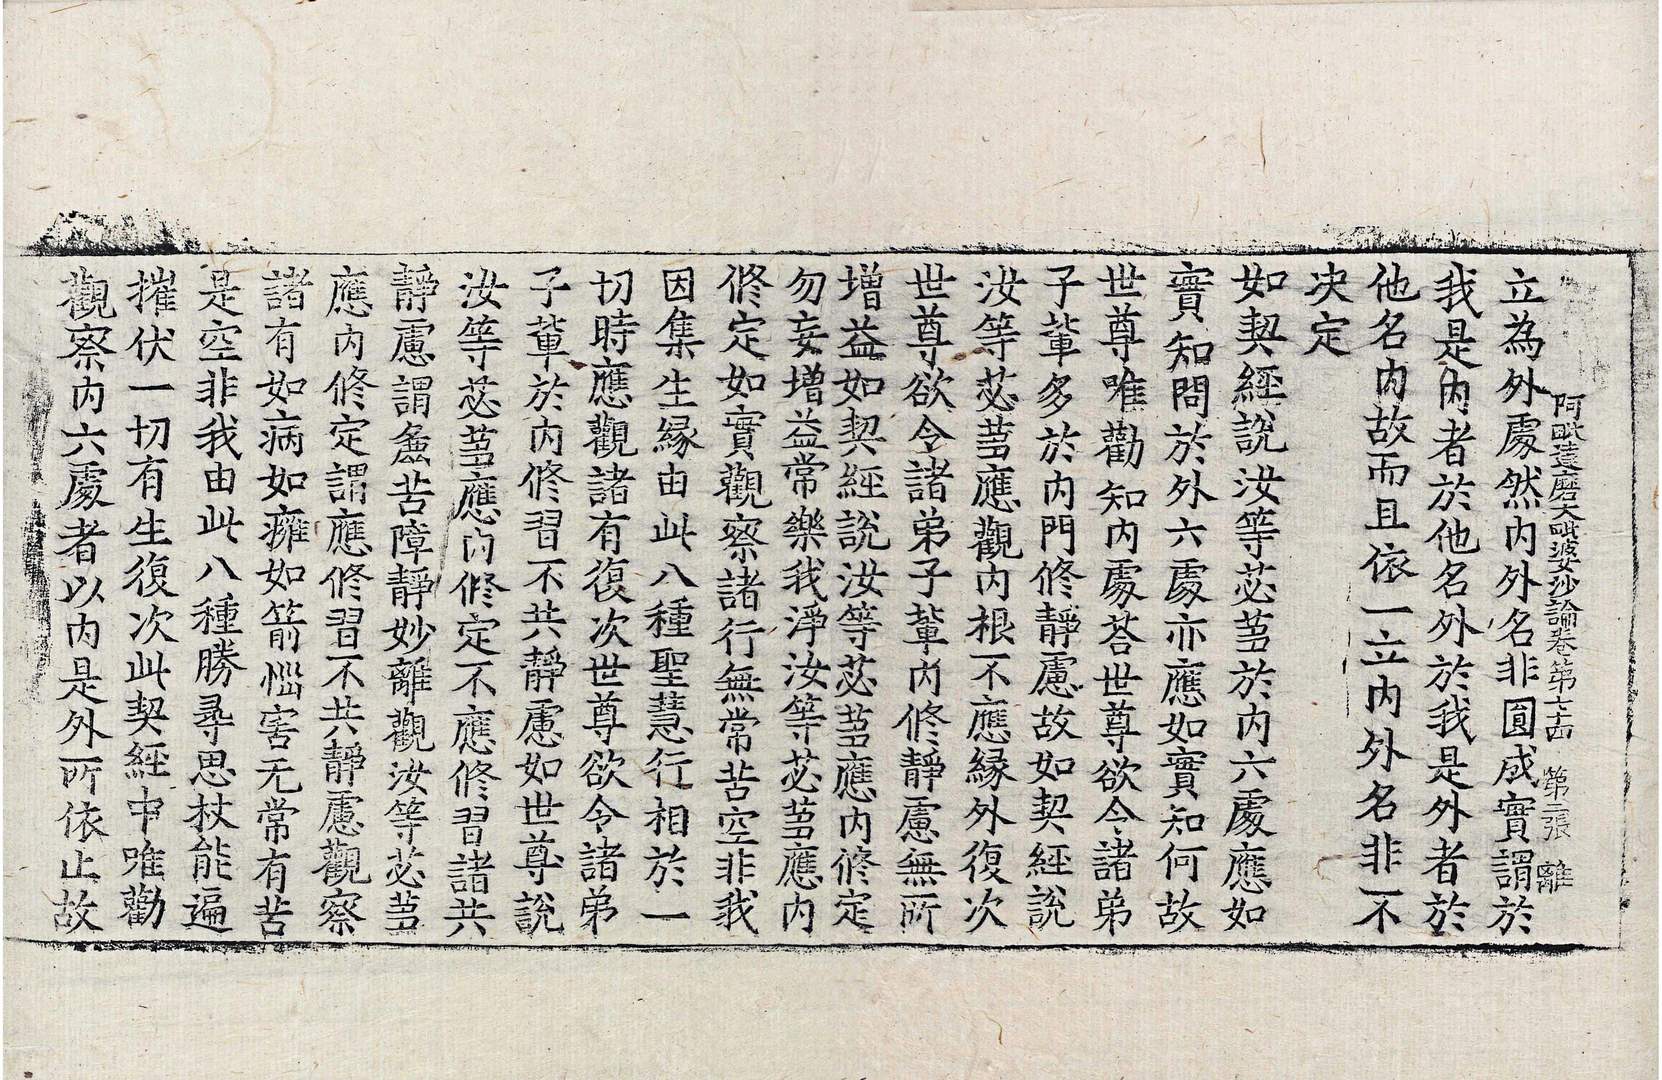 阿毗達磨大毗婆沙論卷第七十四 第二張 離
立為外處然內外名非圓成實謂於
我是內者於他名外於我是外者於
他名內故而且依一立內外名非不
決定
如契經說汝等苾芻於內六處應如
實知問於外六處亦應如實知何故
世尊唯勸知內處荅世尊欲令諸弟
子輩多於內門修靜慮故如契經說
汝等苾芻應觀內根不應緣外復次
世尊欲令諸弟子輩內修靜慮無所
增益如契經說汝等苾芻應內修定
勿妄增益常樂我淨汝等苾芻應內
修定如實觀察諸行無常苦空非我
因集生緣由此八種聖慧行相於一
切時應觀諸有復次世尊欲令諸弟
子輩於內修習不共靜慮如世尊說
汝等苾芻應內修定不應修習諸共
靜慮謂麁苦障靜妙離觀汝等苾芻
應內修定謂應修習不共靜慮觀察
諸有如病如癰如箭惱害无常有苦
是空非我由此八種勝尋思杖能遍
摧伏一切有生復次此契經中唯勸
觀察內六處者以內是外所依止故